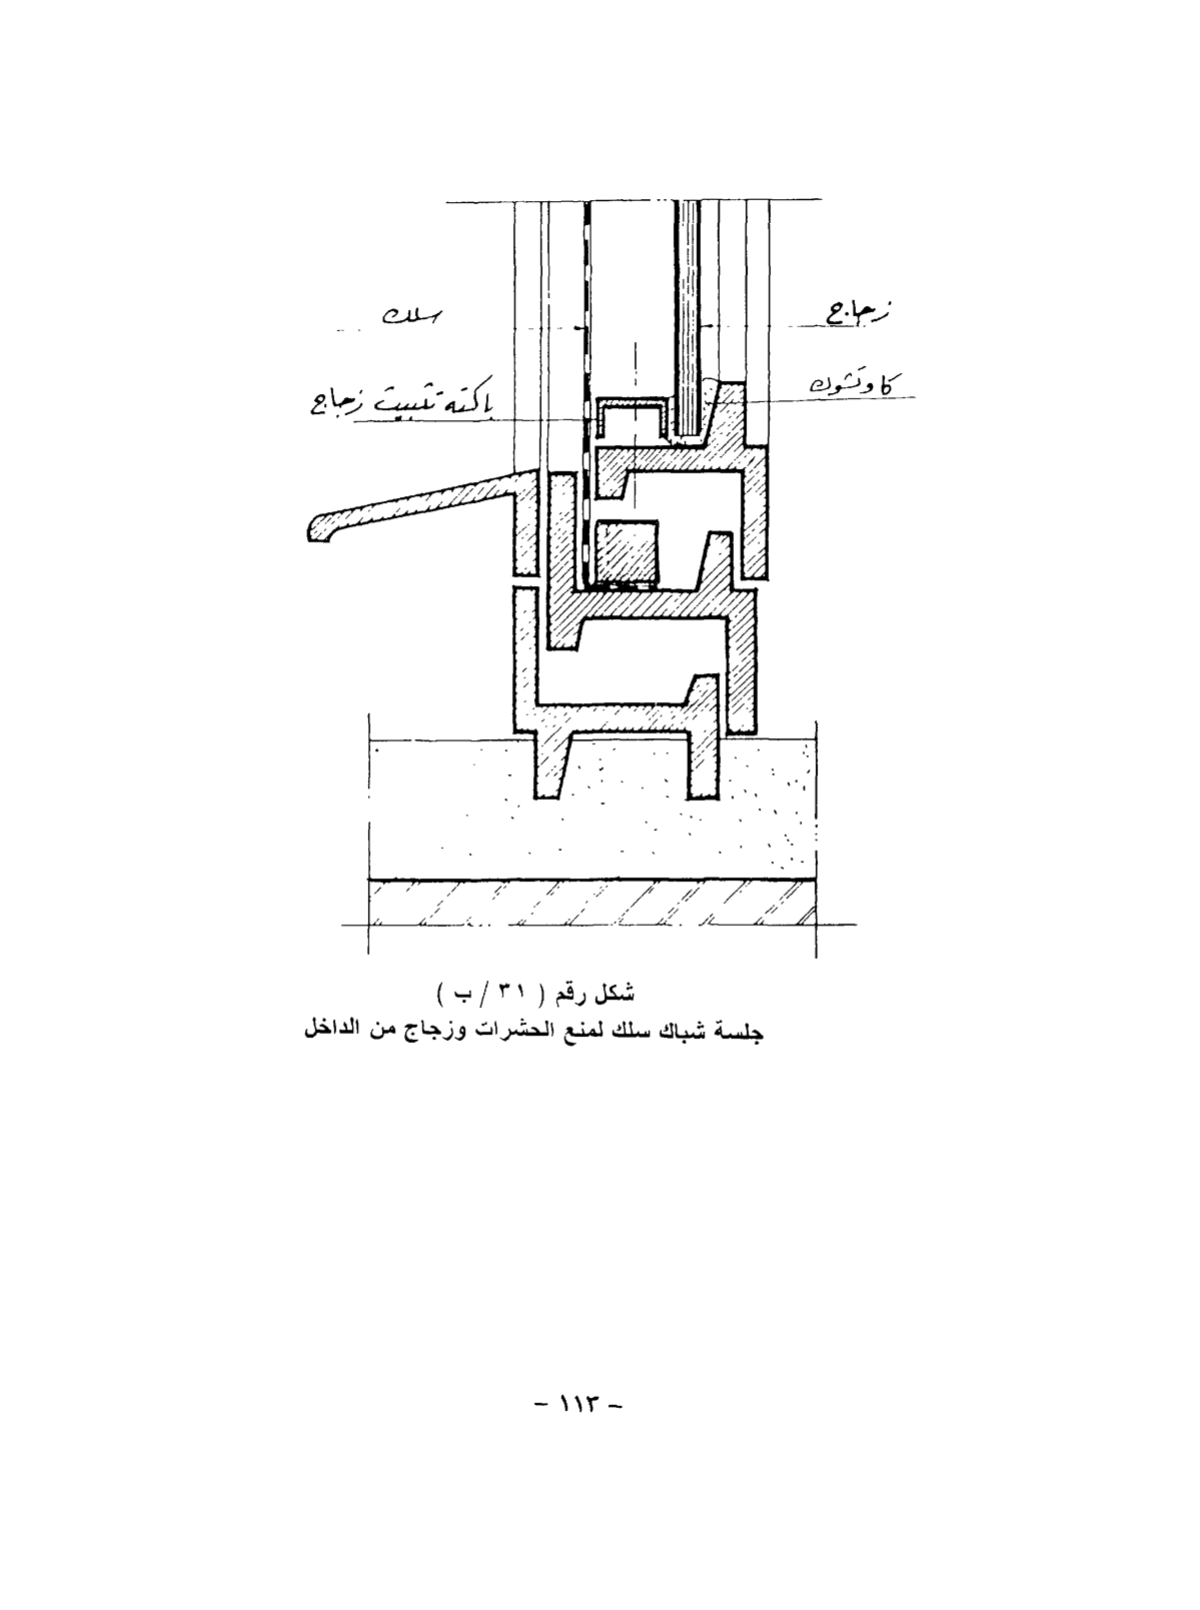 زجاج
سلك
كاوتشوك
باكته تثبيت زجاج
شكل رقم ( ٣١ / ب )
جلسة شباك سلك لمنع الحشرات وزجاج من الداخل
- ١١٣ -